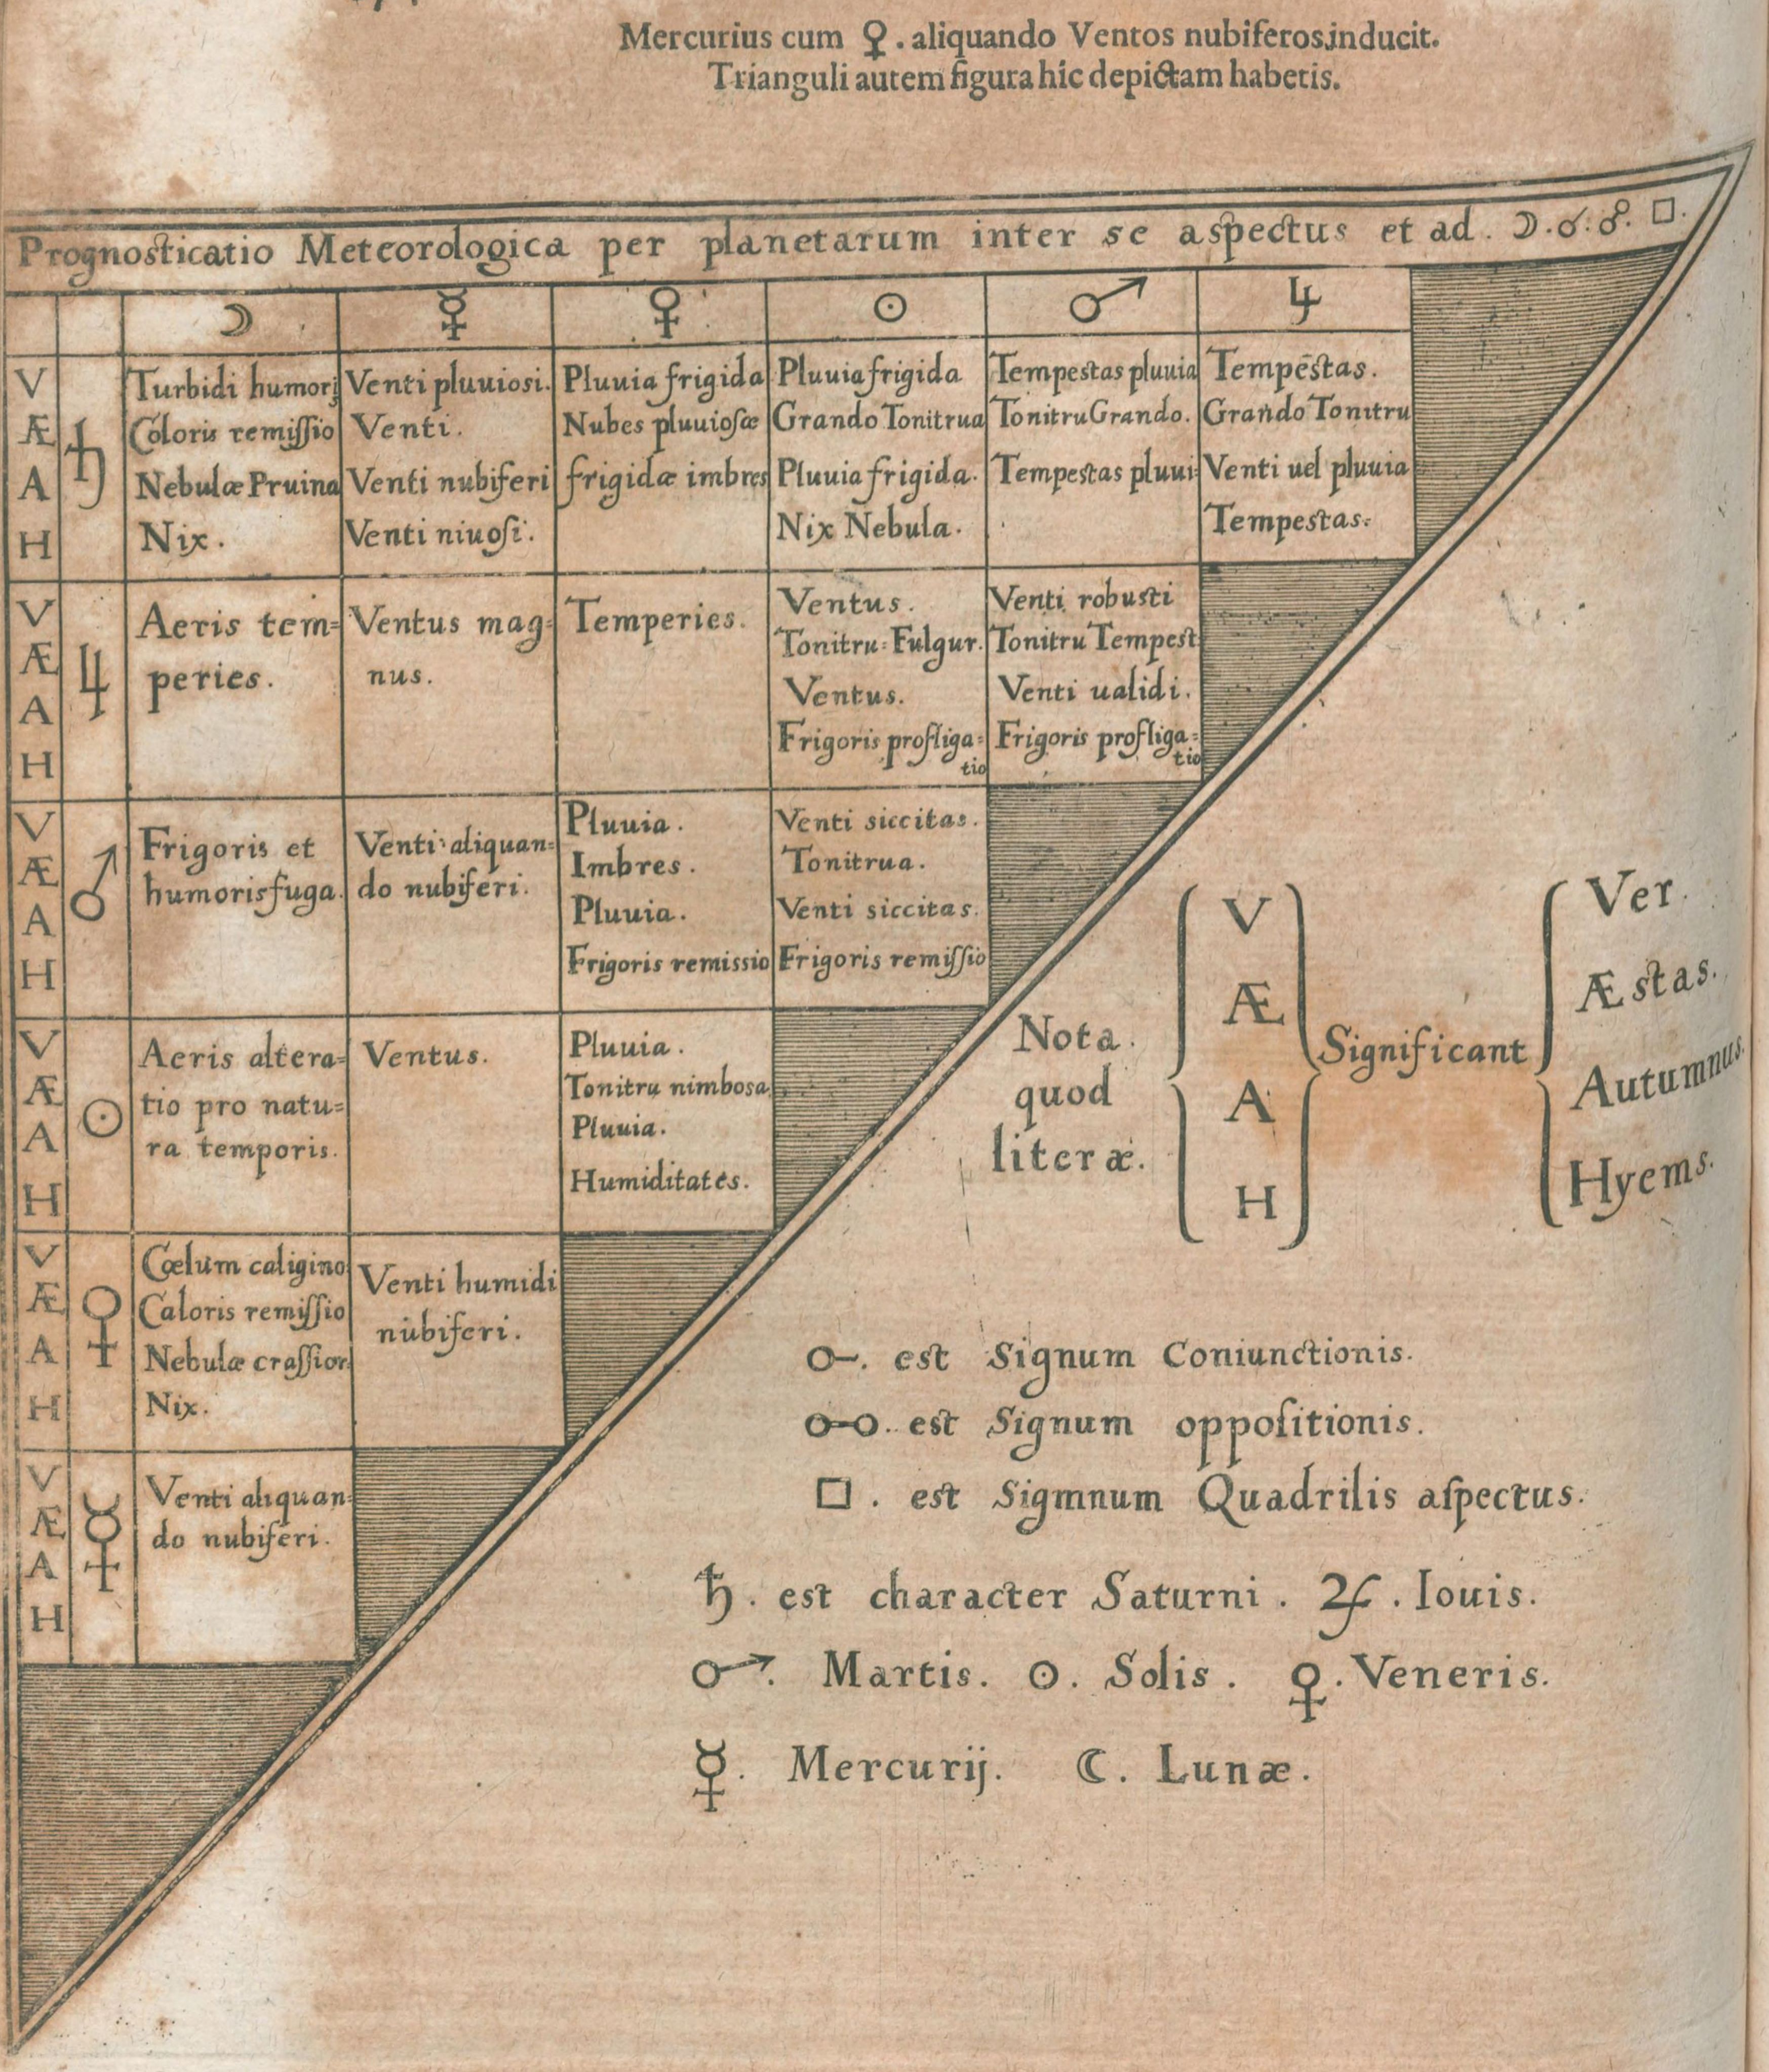 Mercurius cum ♀. aliquando Ventos nubiferos inducit.
Trianguli autem figura hic depictam habetis.
Prognosticatio Meteorologica per planetarum inter se aspectus et ad . ☽ . ☌ : ☍ . □ .
☽ ☿ ♀ ☉ ♂ ♃
V
Æ
A
H
♄
Turbidi humori
Coloris remissio
Nebulæ Pruina
Nix.
Venti pluuiosi.
Venti.
Venti nubiferi
Venti niuosi.
Pluuia frigida
Nubes pluuiosæ
frigidæ imbres
Pluuia frigida
Grando Tonitrua
Pluuia frigida.
Nix Nebula.
Tempestas pluuia
Tonitru Grando.
Tempestas pluui:
Tempestas.
Grando Tonitru
Venti uel pluuia
Tempestas:
V
Æ
A
H
♃
Aeris tem=
peries.
Ventus mag=
nus.
Temperies.
Ventus.
Tonitru: Fulgur.
Ventus.
Frigoris profliga=
tio
Venti robusti
Tonitru Tempest
Venti ualidi.
Frigoris profliga=
tio
V
Æ
A
H
♂
Frigoris et
humoris fuga.
Venti aliquan=
do nubiferi.
Pluuia.
Imbres.
Pluuia.
Frigoris remissio
Venti siccitas.
Tonitrua.
Venti siccitas.
Frigoris remissio
V
Æ
A
H
☉
Aeris altera=
tio pro natu=
ra temporis.
Ventus.
Pluuia.
Tonitru nimbosa
Pluuia.
Humiditates.
V
Æ
A
H
♀
Cœlum caligino
Caloris remissio
Nebulæ crassior
Nix.
Venti humidi
nubiferi.
V
Æ
A
H
☿
Venti aliquan=
do nubiferi.
Nota.
quod
literæ.
V
Æ
A
H
Significant
Ver.
Æstas.
Autumnus.
Hyems.
☌. est Signum Coniunctionis.
☍. est Signum oppositionis.
□ . est Sigmnum Quadrilis aspectus.
♄ . est character Saturni . ♃ . Iouis.
♂. Martis. ☉. Solis . ♀. Veneris.
☿. Mercurij. ☾. Lunæ.